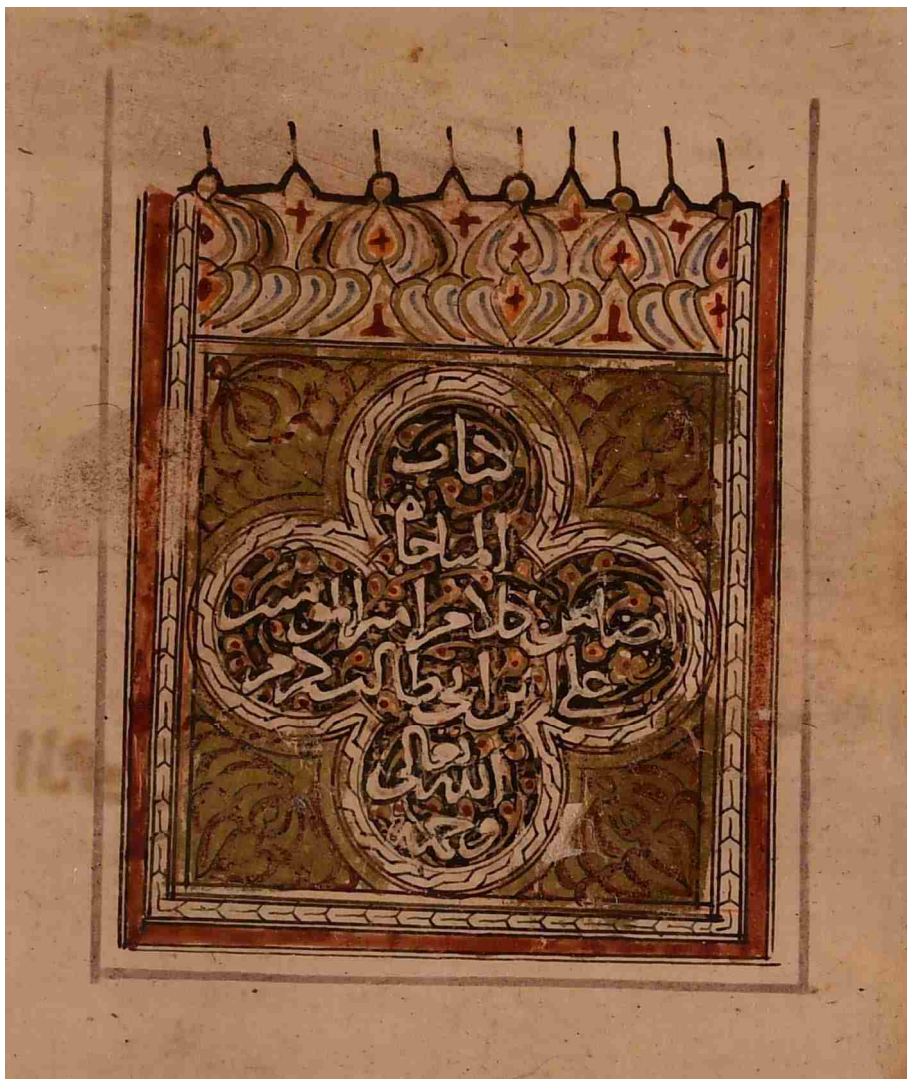 كتاب
الملاحم
ايضا من كلام امير المومنين
على ابن ابى طالب كرم
الله تعالى
وجهه